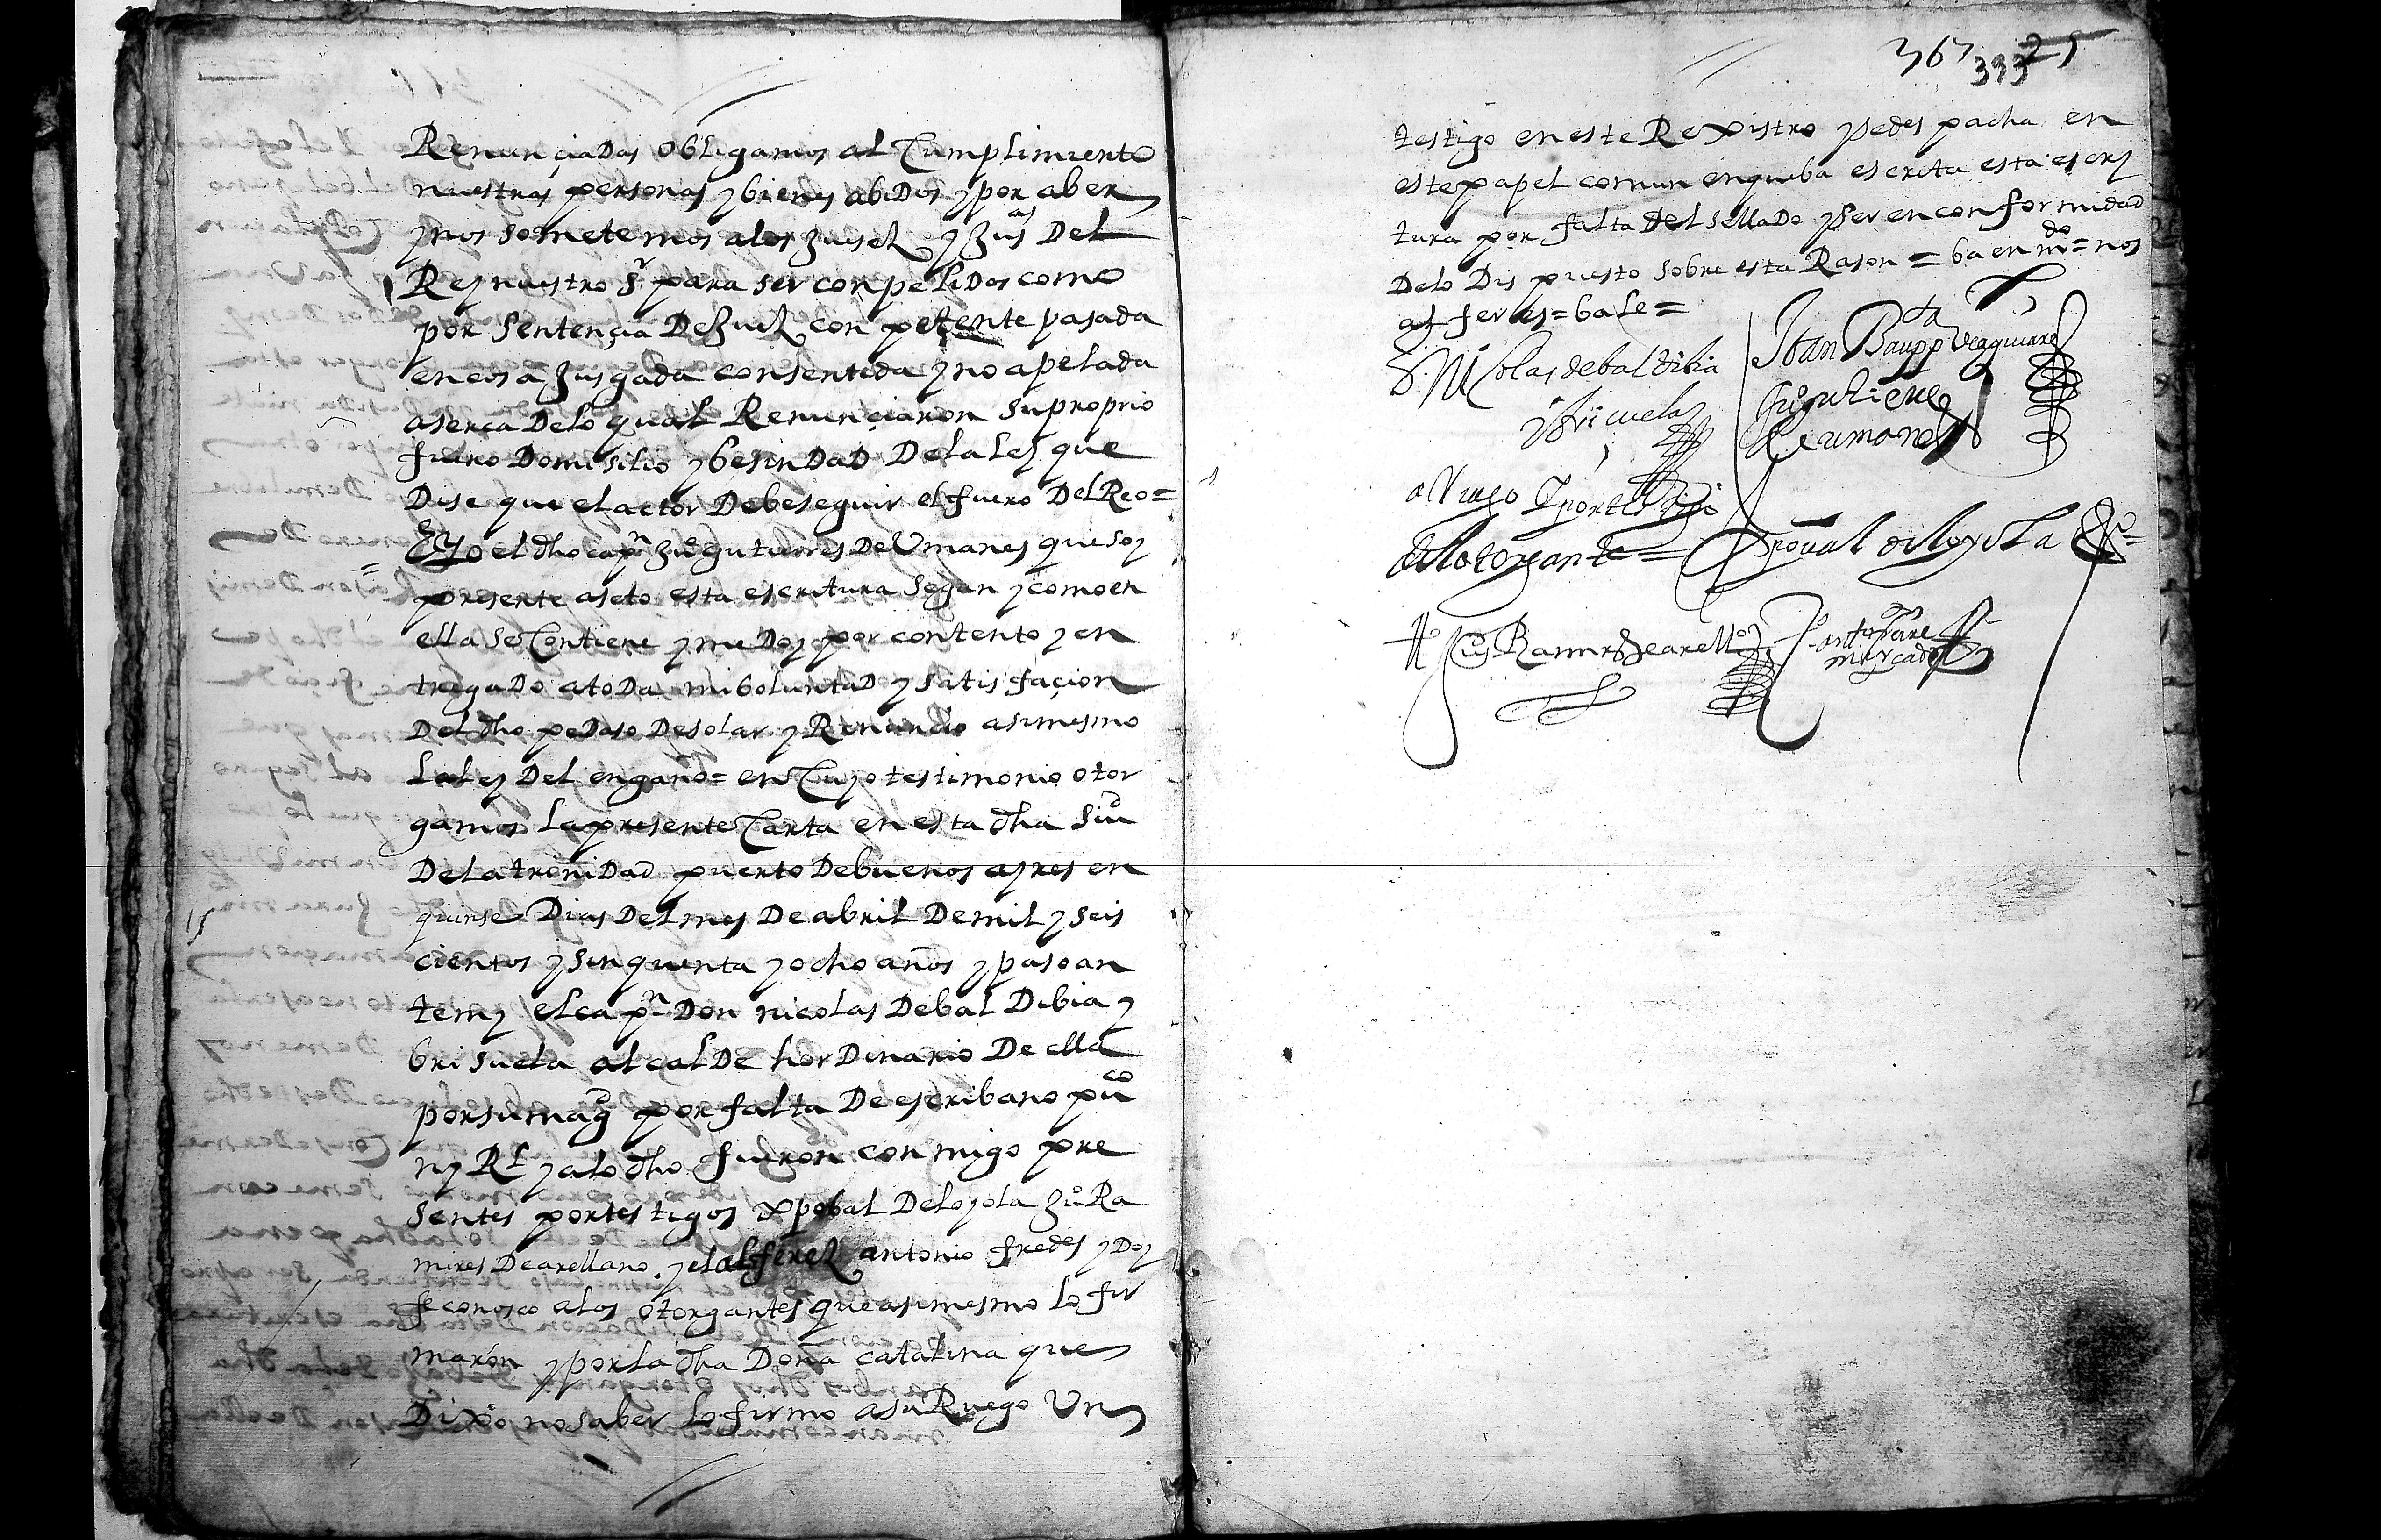 RenunciaDas obligamos al Cumplimiento
nuestras personas y bienes abiDos y por aber
y nos sometemos a los Juesez y Jusas Del
Rey nuestro Sr para ser conpeliDos como
por Sentençia De Juez con petente pasada
en cosa Jusgada consentida y no apelada
aserca Delo qual Renunciaron su proprio
fuero Domisilio y besinDaD De la Ley que
Dise que el actor Debe seguir el fuero Del Reo =
= E Yo el dho capn Juo gutierres De Umanes que soy
presente aseto esta escritura Segun y como en
ella se Contiene y me Doy por contento y en
tregaDo a toDa mi boluntaD y satisfaçion
Del dho peDaso De solar y Renuncio asimesmo
La ley Del engaño = en Cuyo testimonio otor
gamos la presente Carta en esta dha Siud
De la triniDad puerto De buenos ayres en
15 quinse Dias Del mes De abril De mil y seis
cientos y sinquenta y ocho años y paso an
te my el capn Don nicolas De bal Dibia y
brisuela alcalDe horDinario De ella
por su magd por falta De escribano puco
ny Rl y a lo dho fueron conmigo pre
sentes por testigos xpobal De loyola Juo Ra
mires De arellano y el alferez antonio fredes y Doy
fe conosco a los otorgantes que asimesmo lo fir
maron y por la dha Doña catalina que
Dixo no saber lo firmo a su Ruego Un
367 393 25
testigo en este Rexistro y se des pacha en
este papel comun en que ba escrita esta escri
tura por falta del sellaDo y ser en conformidad
Delo Dis puesto sobre esta Rason = ba en mdo = nos
alferes = bale =
D. Nicolas de baldibia
y briçuela
Joan Baupta
Juo gutierrez
de umanes
a Ruego y por testigo
de la otorgante = Xpoual de loyola
to Juo Ramirz de arello
to anto
mercado